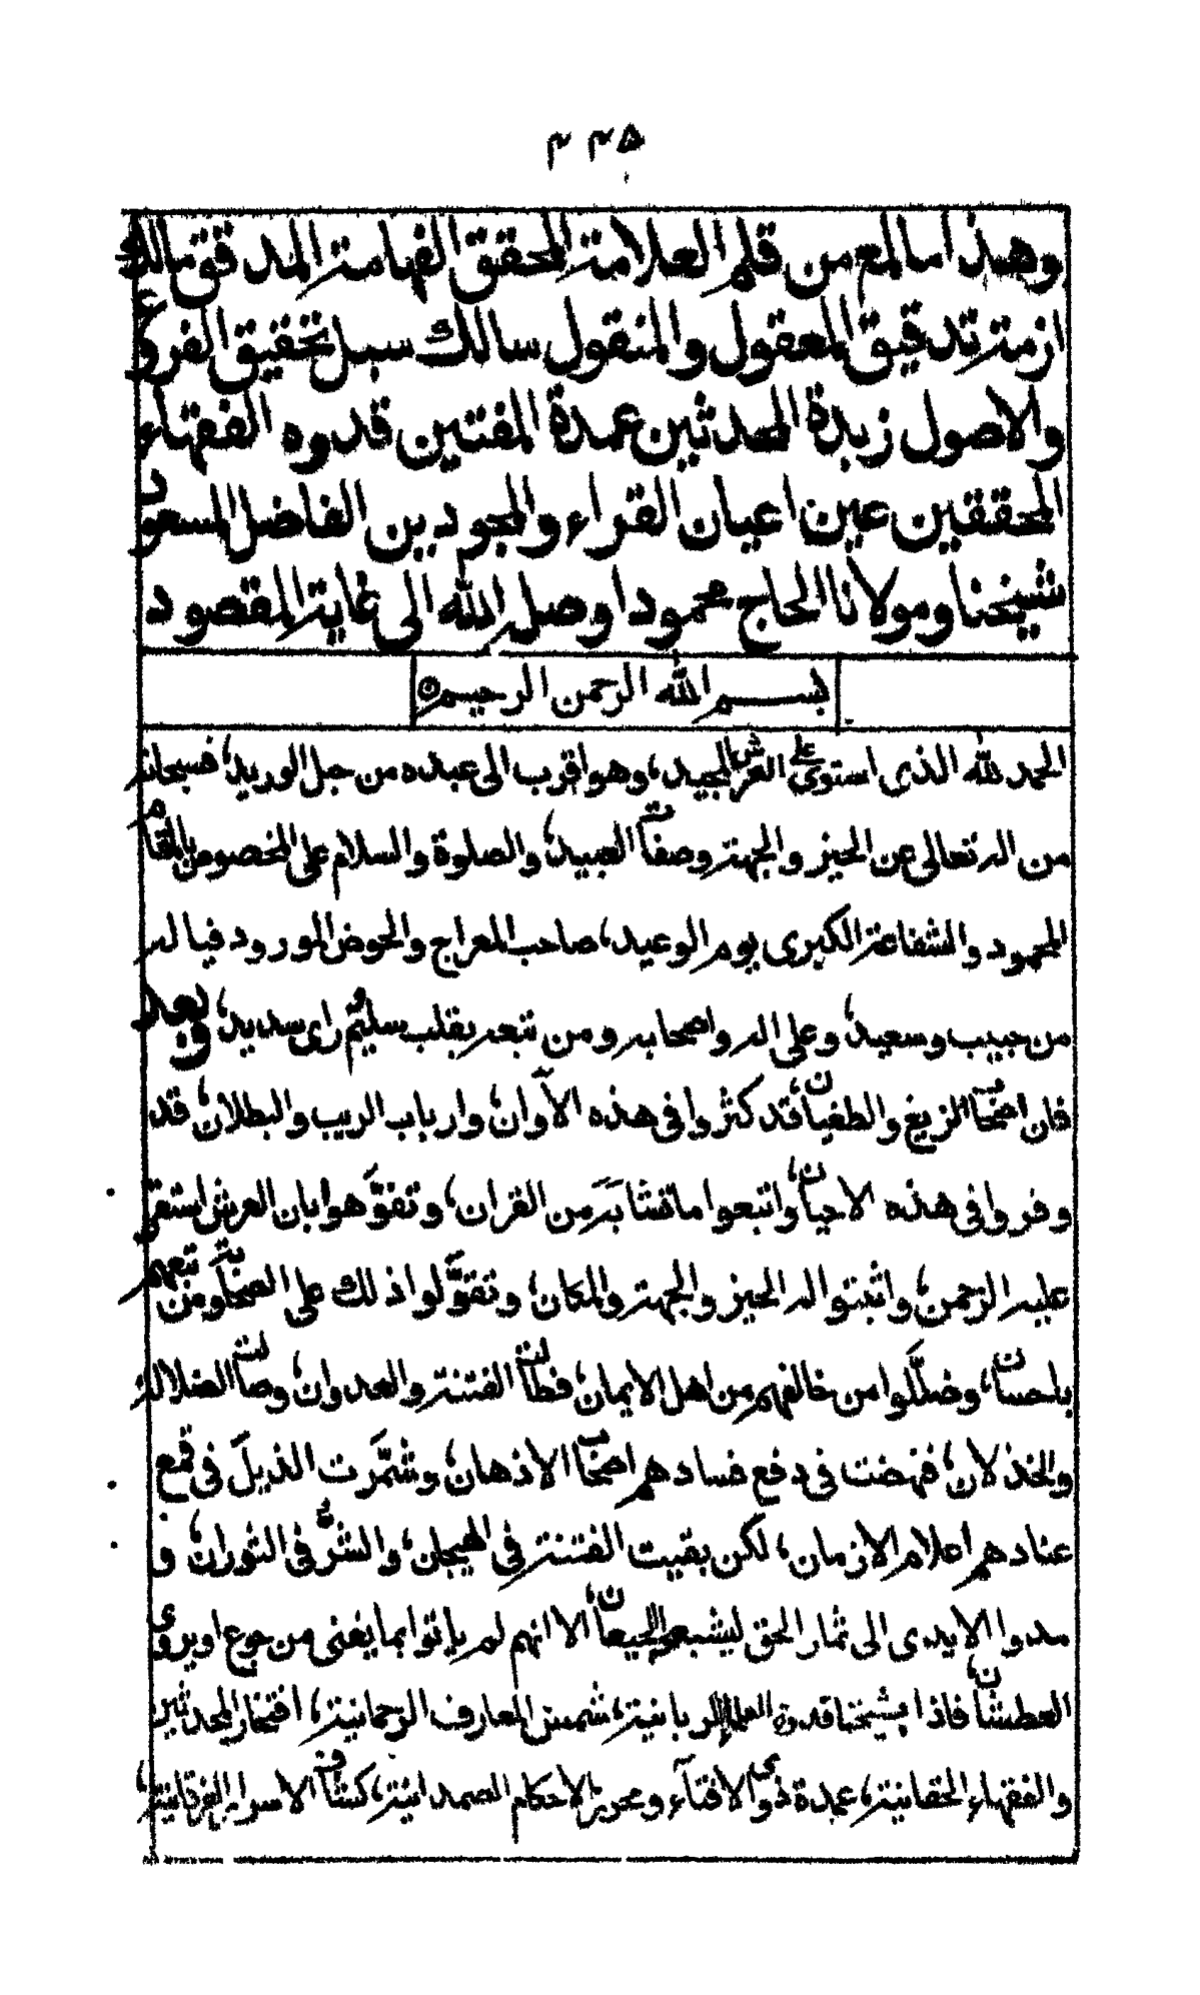 ٢٣٥
وهذا ما لمع من قلم العلامة المحقق الفهامة المدقق مالك
ازمة تدقيق المعقول والمنقول سالك سبل تحقيق الفروع
والاصول زبدة المحدثين عمدة المفتين قدوه الفقهاء
المحققين عين اعيان القراء والمجودين الفاضل المسعود
شيخنا ومولانا الحاج محمود اوصله الله الى غاية المقصود
بسم الله الرحمن الرحيم
الحمد لله الذى استوى على العرش المجيد، وهو اقرب الى عبده من حبل الوريد، فسبحانه
من اله تعالى عن الحيز والجهة وصفات العبيد، والصلوة والسلام على المخصوص بالمقام
المحمود والشفاعة الكبرى يوم الوعيد، صاحب المعراج والحوض المورود فياله
من حبيب وسعيد، وعلى اله واصحابه ومن تبعه بقلب سليم وراى سديد، وبعد
فان اصحاب الزيغ والطغيان، قد كثروا فى هذه الآوان، وارباب الريب والبطلان، قد
وفروا فى هذه الاحيان، واتبعوا ما تشابه من القران، وتفوّهوا بان العرش استقر
عليه الرحمن، واثبتوا له الحيز والجهة والمكان، وتقوّلوا ذلك على الصحابة ومن تبعهم
باحسان، وضلّلوا من خالفهم من اهل الايمان، فطالت الفتنة والعدوان، وصالت الضلالة
والخذلان، فنهضت فى دفع فسادهم اصحاب الاذهان، وشمّرت الذيل فى قمع
عنادهم اعلام الازمان، لكن بقيت الفتنة فى الهيجان، والشرّ فى الثوران، و
مدوا الايدى الى ثمار الحق ليشبعوا الجيعان، الا انهم لم يأتوا بما يغنى من جوع او يروى
العطشان، فاذا بشيخنا قدوة العلماء الربانية، شمس المعارف الرحمانية، افتخار المحدثين
والفقهاء الحقانية، عمدة ذوى الافتاء ومحرر الاحكام الصمدانية، كشاف الاسرار الفرقانية،